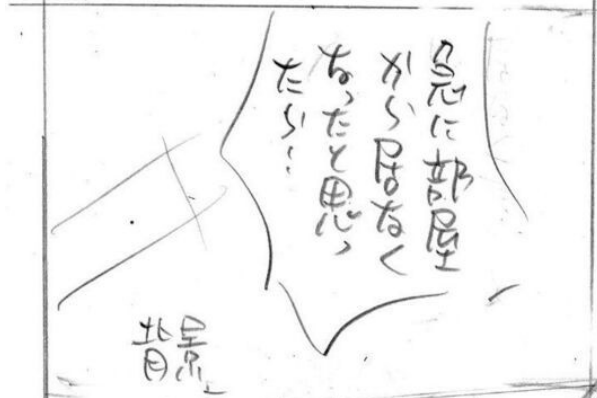 急に部屋
から居なく
なったと思っ
たら!
背景